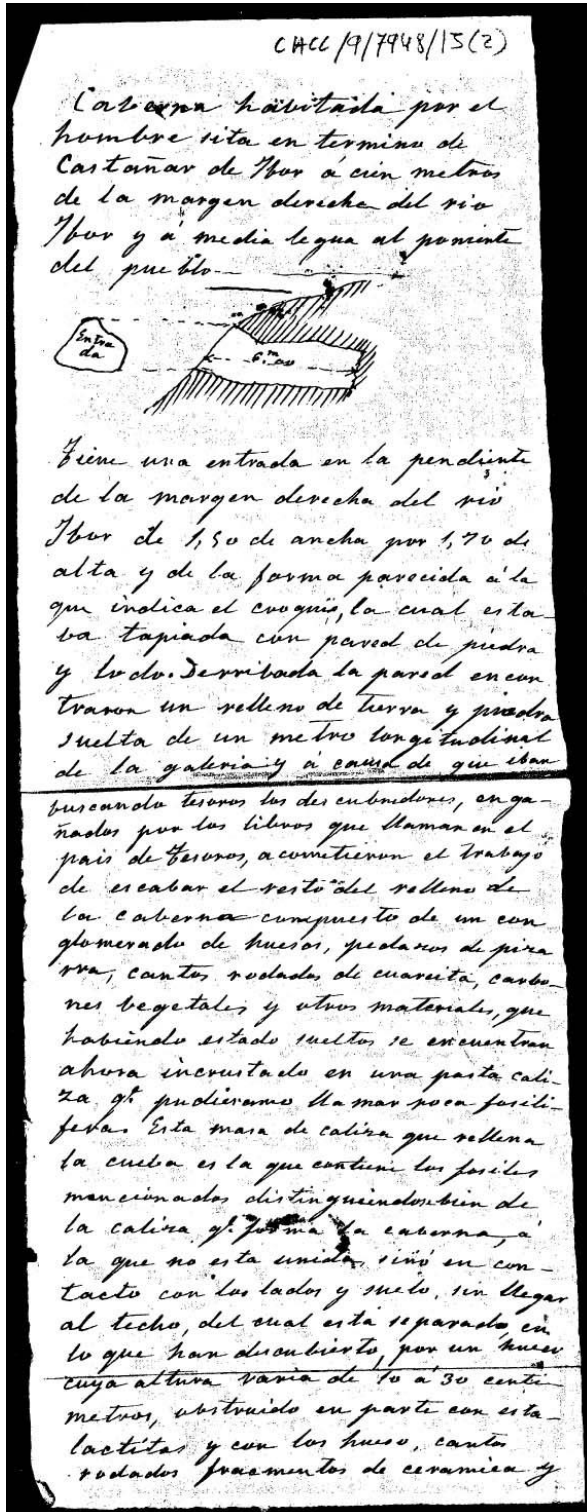 CACC/9/7948/15(2)
Caberna habitada por el
hombre sita en termino de
Castañar de Ibor á cien metros
de la margen derecha del rio
Ibor y á media legua al poniente
del pueblo
Entra
da
6.m00
Tiene una entrada en la pendiente
de la margen derecha del rio
Ibor de 1,50 de ancha por 1,70 de
alta y de la forma parecida á la
que indica el croquis, la cual esta-
ba tapiada con pared de piedra
y lodo. Derribada la pared encon
traron un relleno de tierra y piedra
suelta de un metro longitudinal
de la galeria y á causa de que iban
buscando tesoros los descubridores, enga-
ñados por los libros que llaman en el
pais de tesoros, acometieron el trabajo
de escabar el resto del relleno de
la caberna compuesto de un con
glomerado de huesos, pedazos de piza
rra, cantos rodados de cuarcita, carbo-
nes begetales y otros materiales, que
habiendo estado sueltos se encuentran
ahora incrustado en una pasta cali-
za q.e pudieramo llamar roca fosili-
fera. Esta masa de caliza que rellena
la cueba es la que contiene los fosiles
mencionados distinguiendose bien de
la caliza q.e forma la caberna, á
la que no esta unida, sinó en con-
tacto con los lados y suelo, sin llegar
al techo, del cual está separado, en
lo que han descubierto, por un hueco
cuya altura varia de 10 á 30 centi
metros, obstruido en parte con esta-
lactitas y con los hueso, cantos
rodados fracmentos de ceramica y